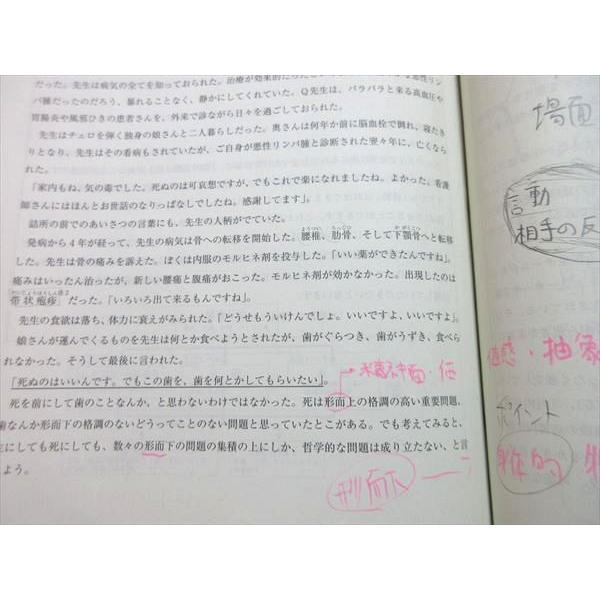 だった。先生は病気の全てを知っておられた。治療が効果的だった
パ腫だったのだろう、暴れることなく、静かにしてくれていた。Q先生は、パラパラと来る高血圧や
胃腸炎や風邪ひきの患者さんを、外来で診ながら日々を過ごしておられた。
先生はチェロを弾く独身の娘さんと二人暮らしだった。奥さんは何年か前に脳血栓で倒れ、寝たき
りとなり、先生はその看病もされていたが、ご自身が悪性リンパ腫と診断された翌々年に、亡くなら
れた。
「家内もね、気の毒でした。死ぬのは可哀想ですが、でもこれで楽になれましたね。よかった。看護
師さんにはほんとお世話のなりっぱなしでしたね。感謝してます」。
詰所の前でのあいさつの言葉にも、先生の人柄がでていた。
発病から4年が経って、先生の病気は骨への転移を開始した。腰椎、肋骨、そして下顎骨へと転移
した。先生は骨の痛みを訴えた。ぼくは内服のモルヒネ剤を投与した。「いい薬ができたんですね」。
痛みはいったん治ったが、新しい腰痛と腹痛がおこった。モルヒネ剤が効かなかった。出現したのは
「帯状疱疹」だった。「いろいろ出て来るもんですね」。
先生の食欲は落ち、体力に衰えがみられた。「どうせもういけんでしょ。いいですよ、いいですよ」。
娘さんが運んでくるものを先生は何とか食べようとされたが、歯がぐらつき、歯がうずき、食べら
れなかった。そうして最後に言われた。
「死ぬのはいいんです。でもこの歯を、歯を何とかしてもらいたい」。
死を前にして歯のことなんか、と思わないわけではなかった。死は形而上の格調の高い重要問題、
歯なんか形而下の格調のないどうってことのない問題と思っていたところがある。でも考えてみると、
生にしても死にしても、数々の形而下の問題の集積の上にしか、哲学的な問題は成り立たない、と言
えよう。
形而下
場面
言動
相手の反
抽象
ポイント